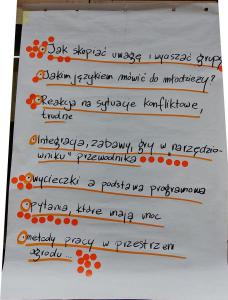 Jak skupiać uwagę i wyciszać grupę
Jakim językiem mówić do młodzieży?
Reakcja na sytuacje konfliktowe,
trudne
Integracja, zabawy, gry w narzędzio-
wniku" przewodnika
wycieczki a podstawa programowa
pytania, które mają moc
metody pracy w przestrzeni
ogrodu...